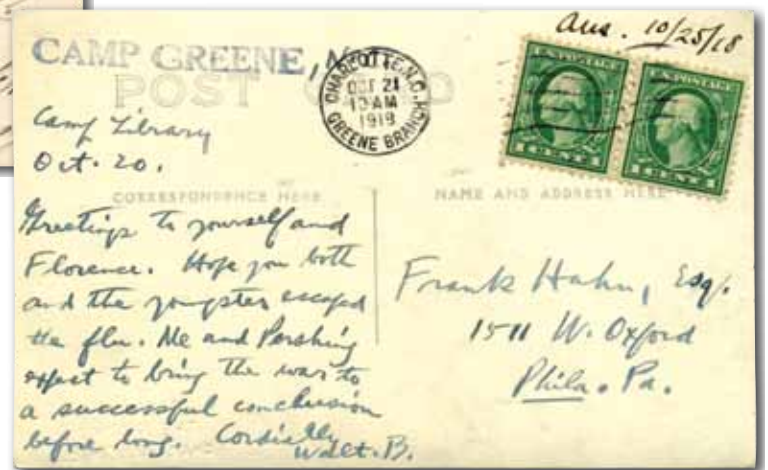 Ans. 10/25/18
CAMP GREENE, N.
POST CARD
CHARLOTTE, N.C.
OCT 21
10 AM
1918
GREENE BRANCH
U.S. POSTAGE
1 CENT 1
U.S. POSTAGE
1 CENT 1
Camp Library
Oct. 20.
CORRESPONDENCE HERE
NAME AND ADDRESS HERE
Greetings to yourself and
Florence. Hope you both
and the youngster escaped
the flu. Me and Pershing
expect to bring the war to
a successful conclusion
before long. Cordially
Walt. B.
Frank Hahn, Esq.
1511 W. Oxford
Phila. Pa.